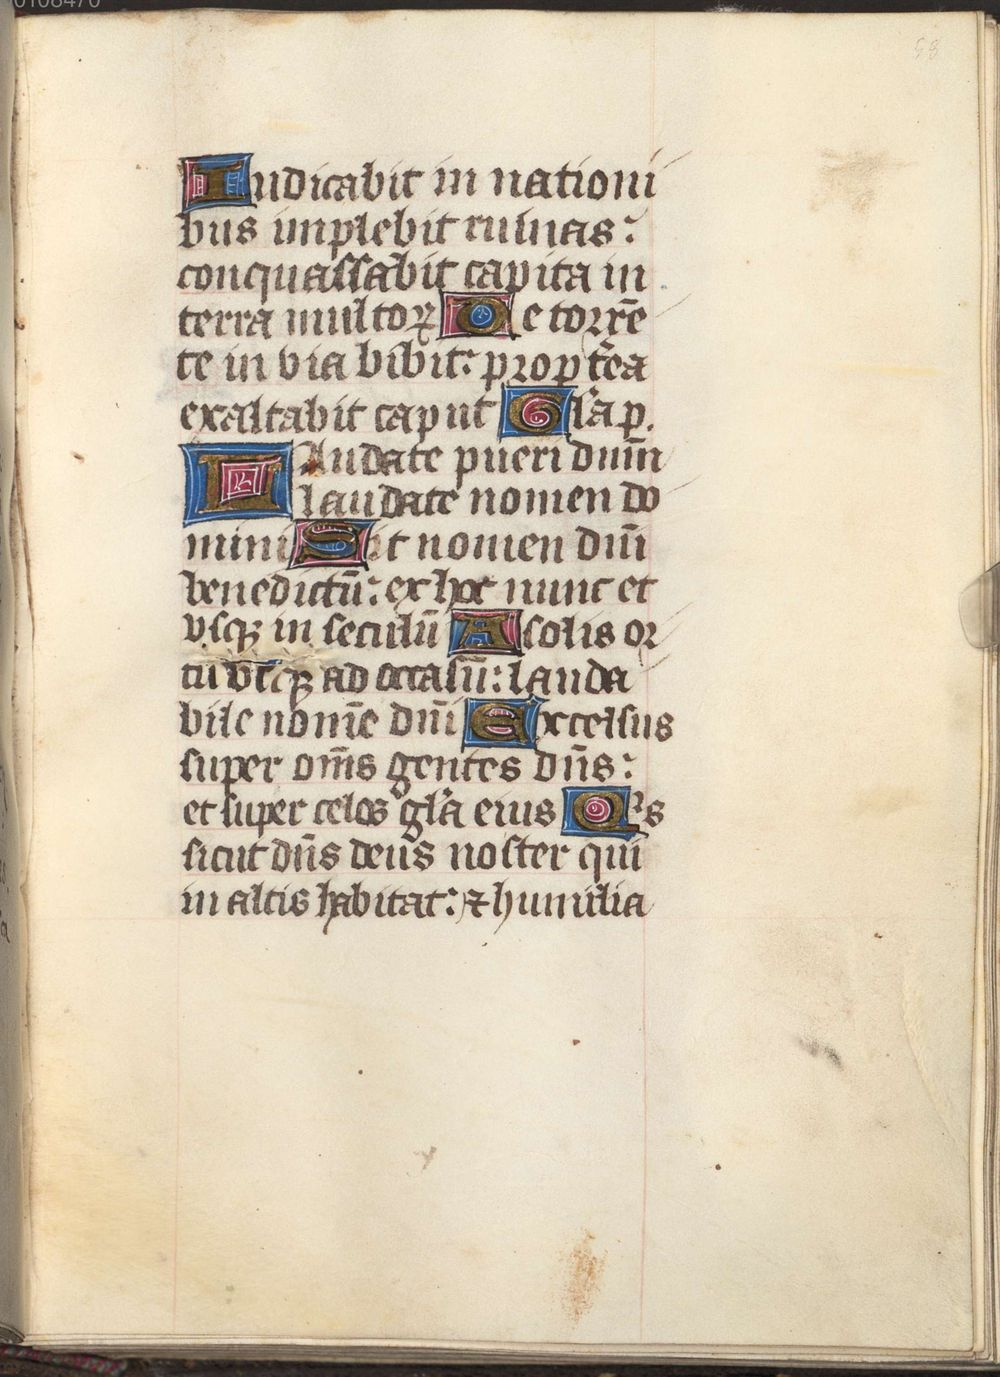 0108470
58
Iudicabit in nationi
bus implebit ruinas:
conquassabit capita in
terra multoꝝ De torrẽ
te in via bibit: propt̃ea
exaltabit caput Gl̃a p.
Laudate pueri dnm̃
laudate nomen do
mini Sit nomen dnĩ
benedictũ: ex hoc nunc et
vsqꝫ in seculũ A solis or
tu vsqꝫ ad occasũ: lauda
bile nomẽ dnĩ Excelsus
super om̃s gentes dñs:
et super celos gl̃a eius Qͥs
sicut dñs deus noster qui
in altis habitat: ⁊ humilia